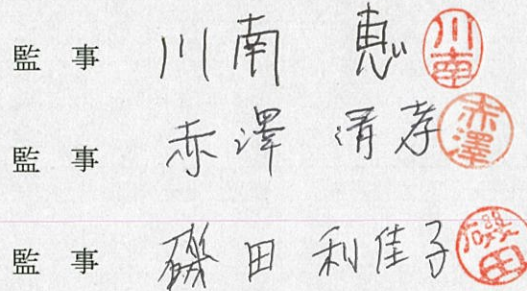 監 事 川南 恵 川南
監 事 赤澤 清孝 赤澤
監 事 磯田 利佳子 磯田